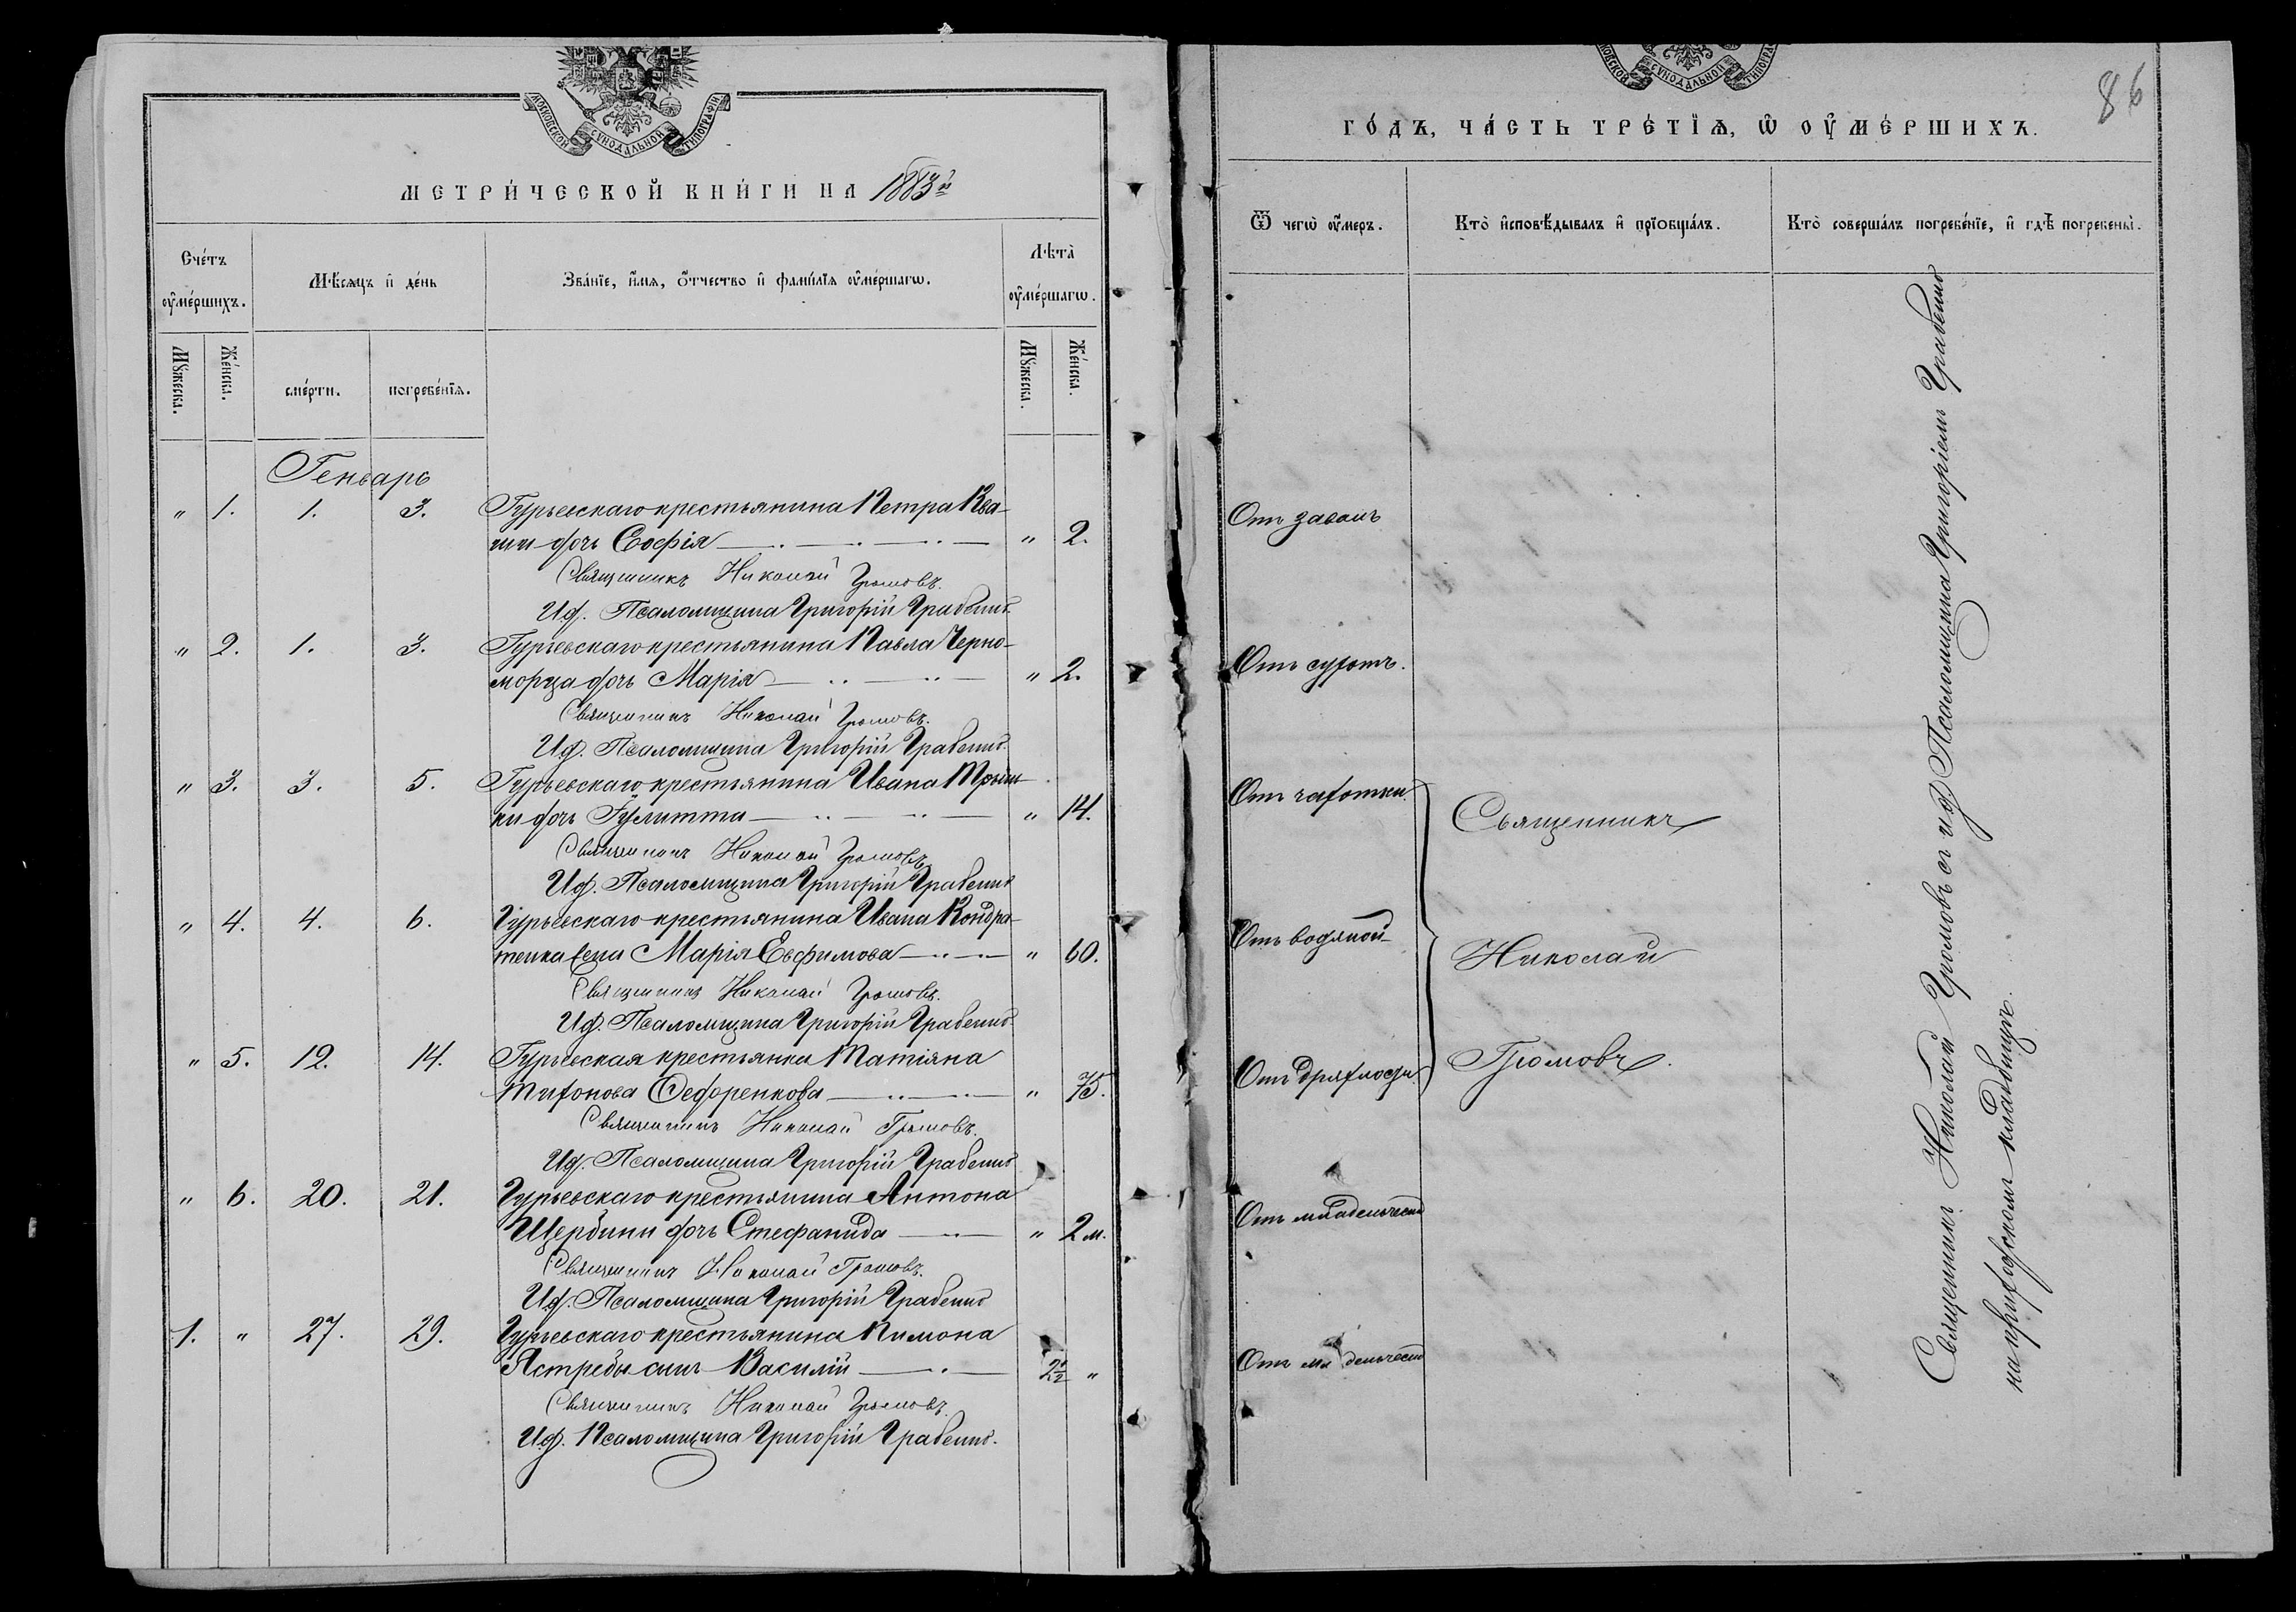 МОСКОВСКОЙ СѴНОДАЛЬНОЙ ТИПОГРАФІИ
МЕТРИ́ЧЕСКОЙ КНИ́ГИ НА 1883й
Сче́тъ ᲂу҆ме́ршихъ.
Мѣ́сяцъ и҆ де́нь
Зва́нїе, и҆́мя, ѻ҆́тчество и҆ фами́лїя ᲂу҆ме́ршагѡ.
Лѣ́та ᲂу҆ме́ршагѡ.
Мꙋ́жеска.
Же́нска.
сме́рти.
погребе́нїя.
Мꙋ́жеска.
Же́нска.
Генварь
" 1. 1. 3. Гурьевскаго крестьянина Петра Ква-
ши дочь Софія " 2.
Священникъ Николай Громовъ.
Ид. Псаломщика Григорій Грабенко
" 2. 1. 3. Гурьевскаго крестьянина Павла Черно-
морца дочь Марія " 2.
Священникъ Николай Громовъ.
Ид. Псаломщика Григорій Грабенко
" 3. 3. 5. Гурьевскаго крестьянина Ивана
ки дочь Іулитта " 14.
Священникъ Николай Громовъ
Ид. Псаломщика Григорій Грабенко
" 4. 4. 6. Гурьевскаго крестьянина Ивана Кондра-
тенка жена Марія Евфимова " 60.
Священникъ Николай Громовъ.
Ид. Псаломщика Григорій Грабенко
" 5. 12. 14. Гурьевская крестьянка Татіяна
Тихонова Федоренкова " 75.
Священникъ Николай Громовъ.
Ид. Псаломщика Григорій Грабенко
" 6. 20. 21. Гурьевскаго крестьянина Антона
Щербины дочь Стефанида " 2 м.
Священникъ Николай Громовъ.
Ид. Псаломщика Григорій Грабенко
1. " 27. 29. Гурьевскаго крестьянина Пимона
Ястребы сынъ Василій 2 1/2 "
Священникъ Николай Громовъ
Ид. Псаломщика Григорій Грабенко.
МОСКОВСКОЙ СѴНОДАЛЬНОЙ ТИПОГРАФІИ
86
ГО́ДЪ, ЧА́СТЬ ТРЕ́ТЇѦ, Ѡ҆ ОУ҆МЕ́РШИХЪ.
Ѿ чегѡ̀ ᲂу҆́меръ.
Кто̀ и҆сповѣ́дывалъ и҆ прїобща́лъ.
Кто̀ соверша́лъ погребе́нїе, и҆ гдѣ̀ погребены̀.
Отъ
Отъ сухотъ.
Отъ чахотки.
Отъ водяной
Отъ дряхлости
Отъ младенчест
Отъ младенчест
Священникъ
Николай
Громовъ.
Священникъ Николай Громовъ съ ид. Псаломщика Григоріемъ Грабенко
на приходскомъ кладбищѣ.